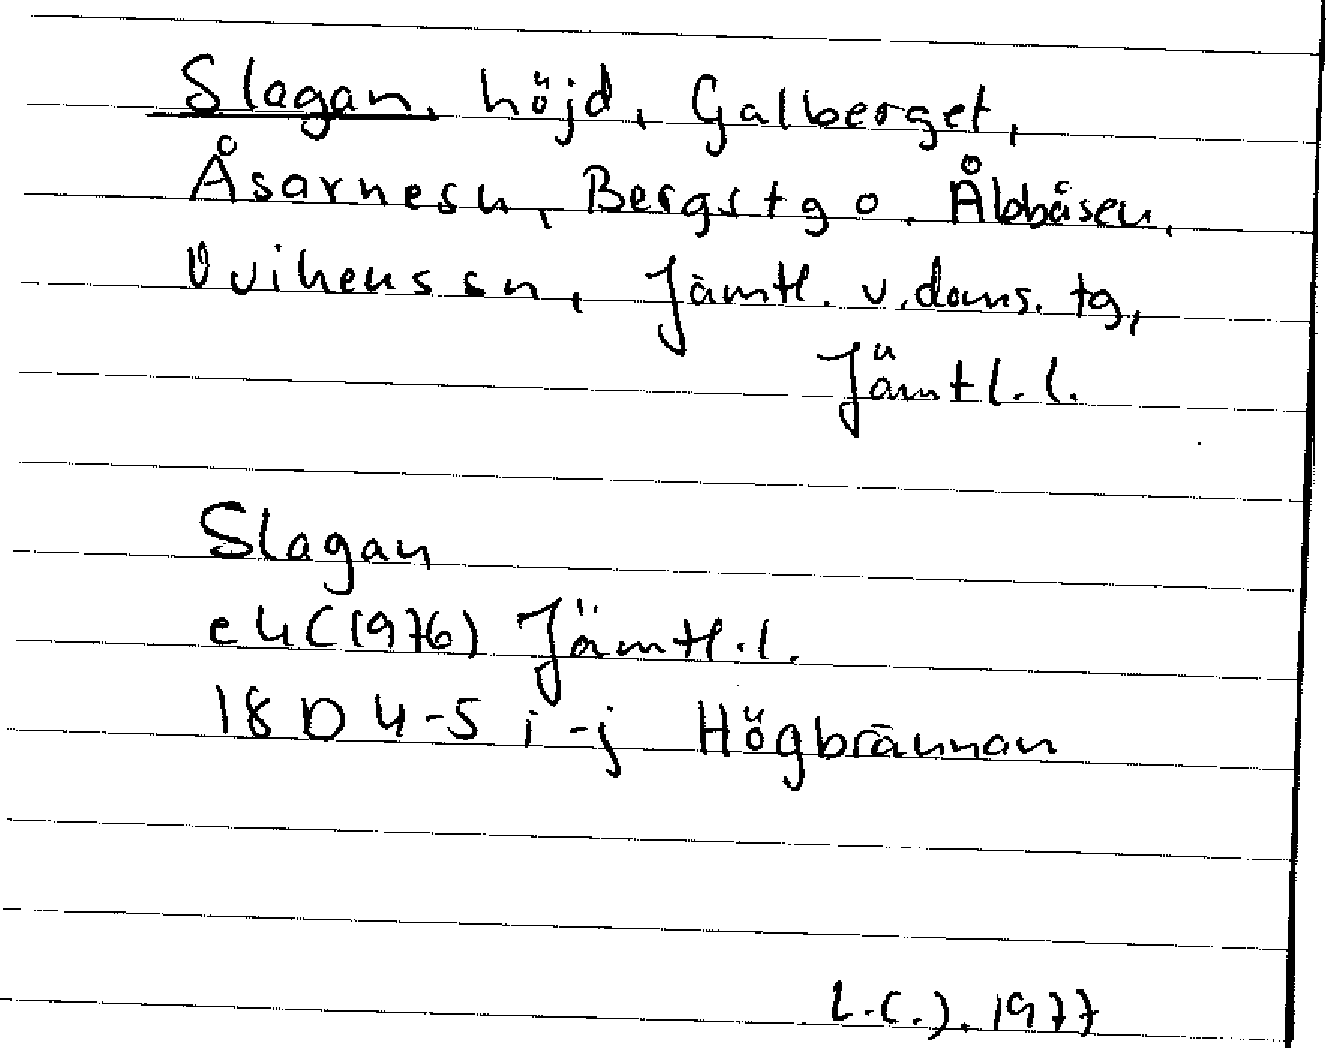 Slagan, höjd, Galberget,
Åsarne sn, Bergs tg o. Åbbåsen,
Ovikens sn, Jämtl. v. doms. tg,
Jämtl. l.
Slagan
ek (1976) Jämtl. l.
18 D 4-5 i-j Högbrännan
1977